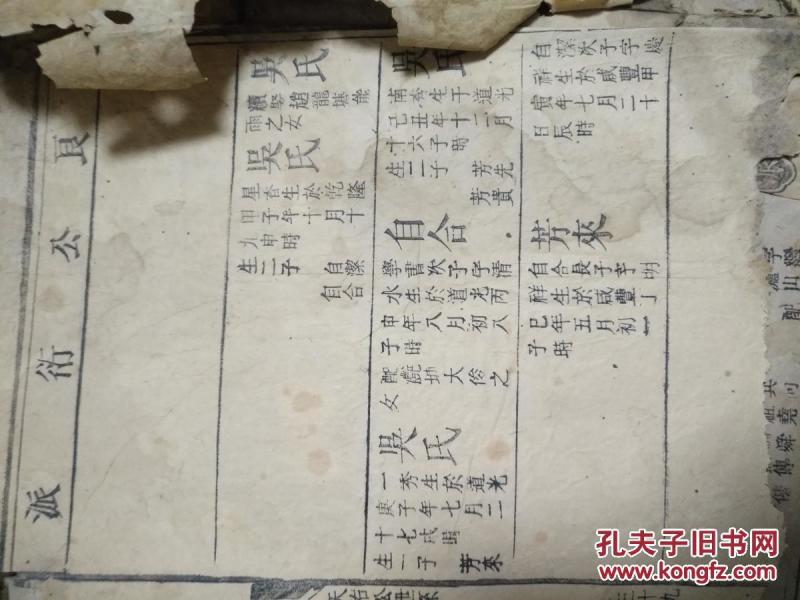 良公衍派
吳氏
續娶趙龍塘能
雨之女
吳氏
星香生於乾隆
甲子年十月十
九申時
生二子 自潔
自合
吳氏
南秀生于道光
己丑年十二月
十六子時
生二子 芳先
芳貴
自合
學書次子字清
水生於道光丙
申年八月初八
子時
配 坳大俗之
女
吳氏
一秀生於道光
庚子年七月二
十七戌時
生一子 芳來
自潔次子字慶
祥生於咸豐甲
寅年七月二十
日辰時
芳來
自合長子字明
祥生於咸豐丁
巳年五月初一
子時
孔夫子旧书网
www.kongfz.com